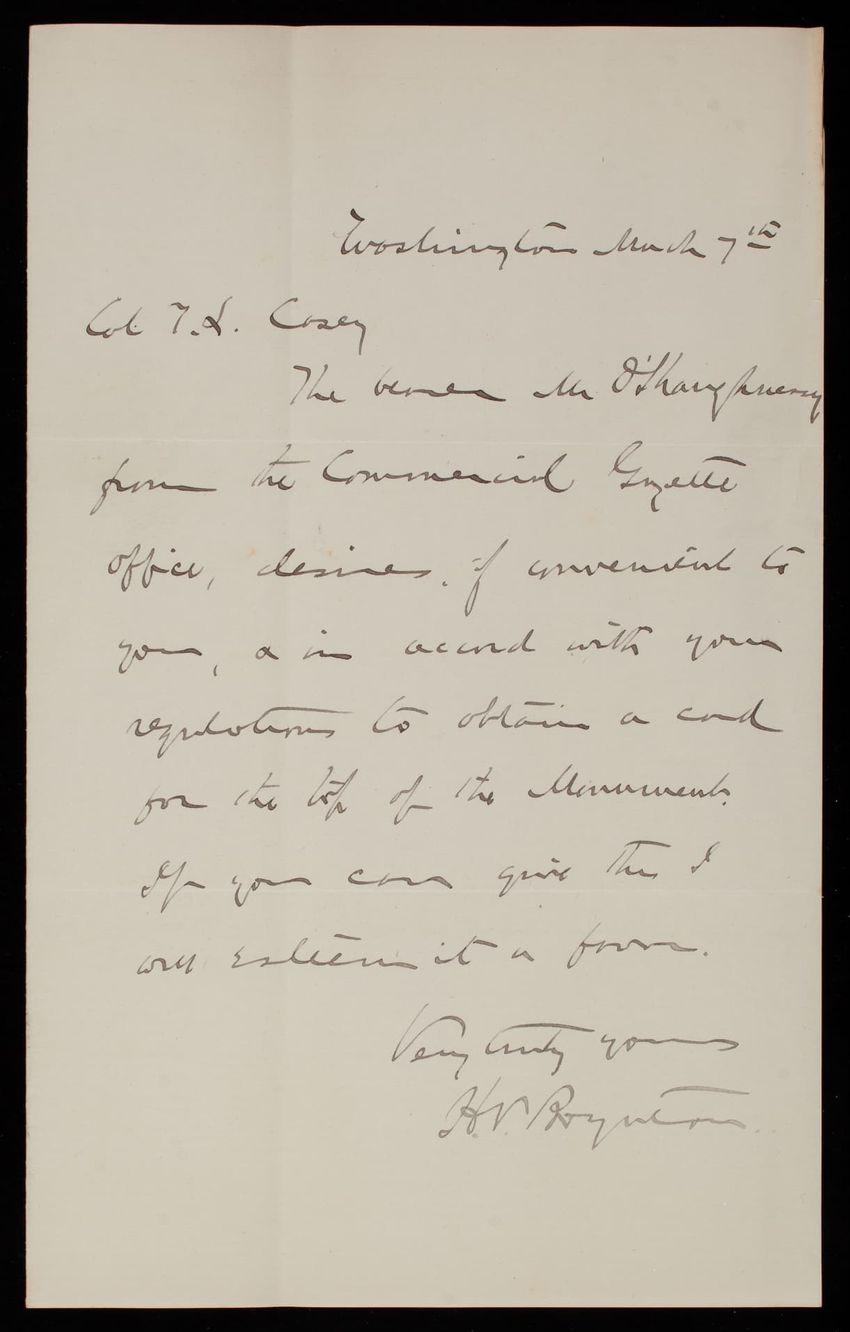 Washington March 7th
Col T.L. Casey
The bearer Mr O'Shaughnessy
from the Commercial Gazette
office, desires, if convenient to
you, & in accord with your
regulations to obtain a card
for the top of the Monument.
If you can give this I
will esteem it a favor.
Very truly yours
H.V. Boynton